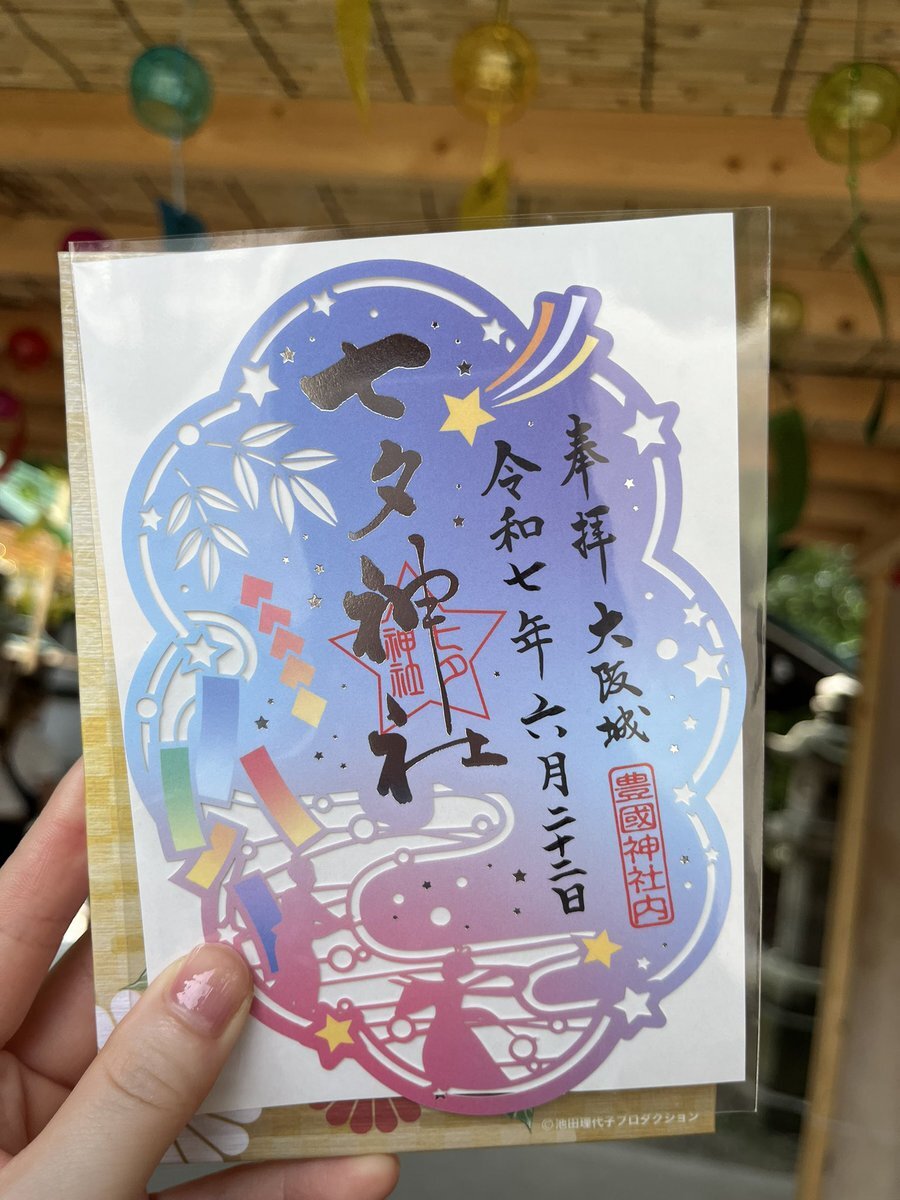 奉拝 大阪城
豊國神社内
令和七年六月二十二日
七夕神社
七夕
神社
©池田理代子プロダクション